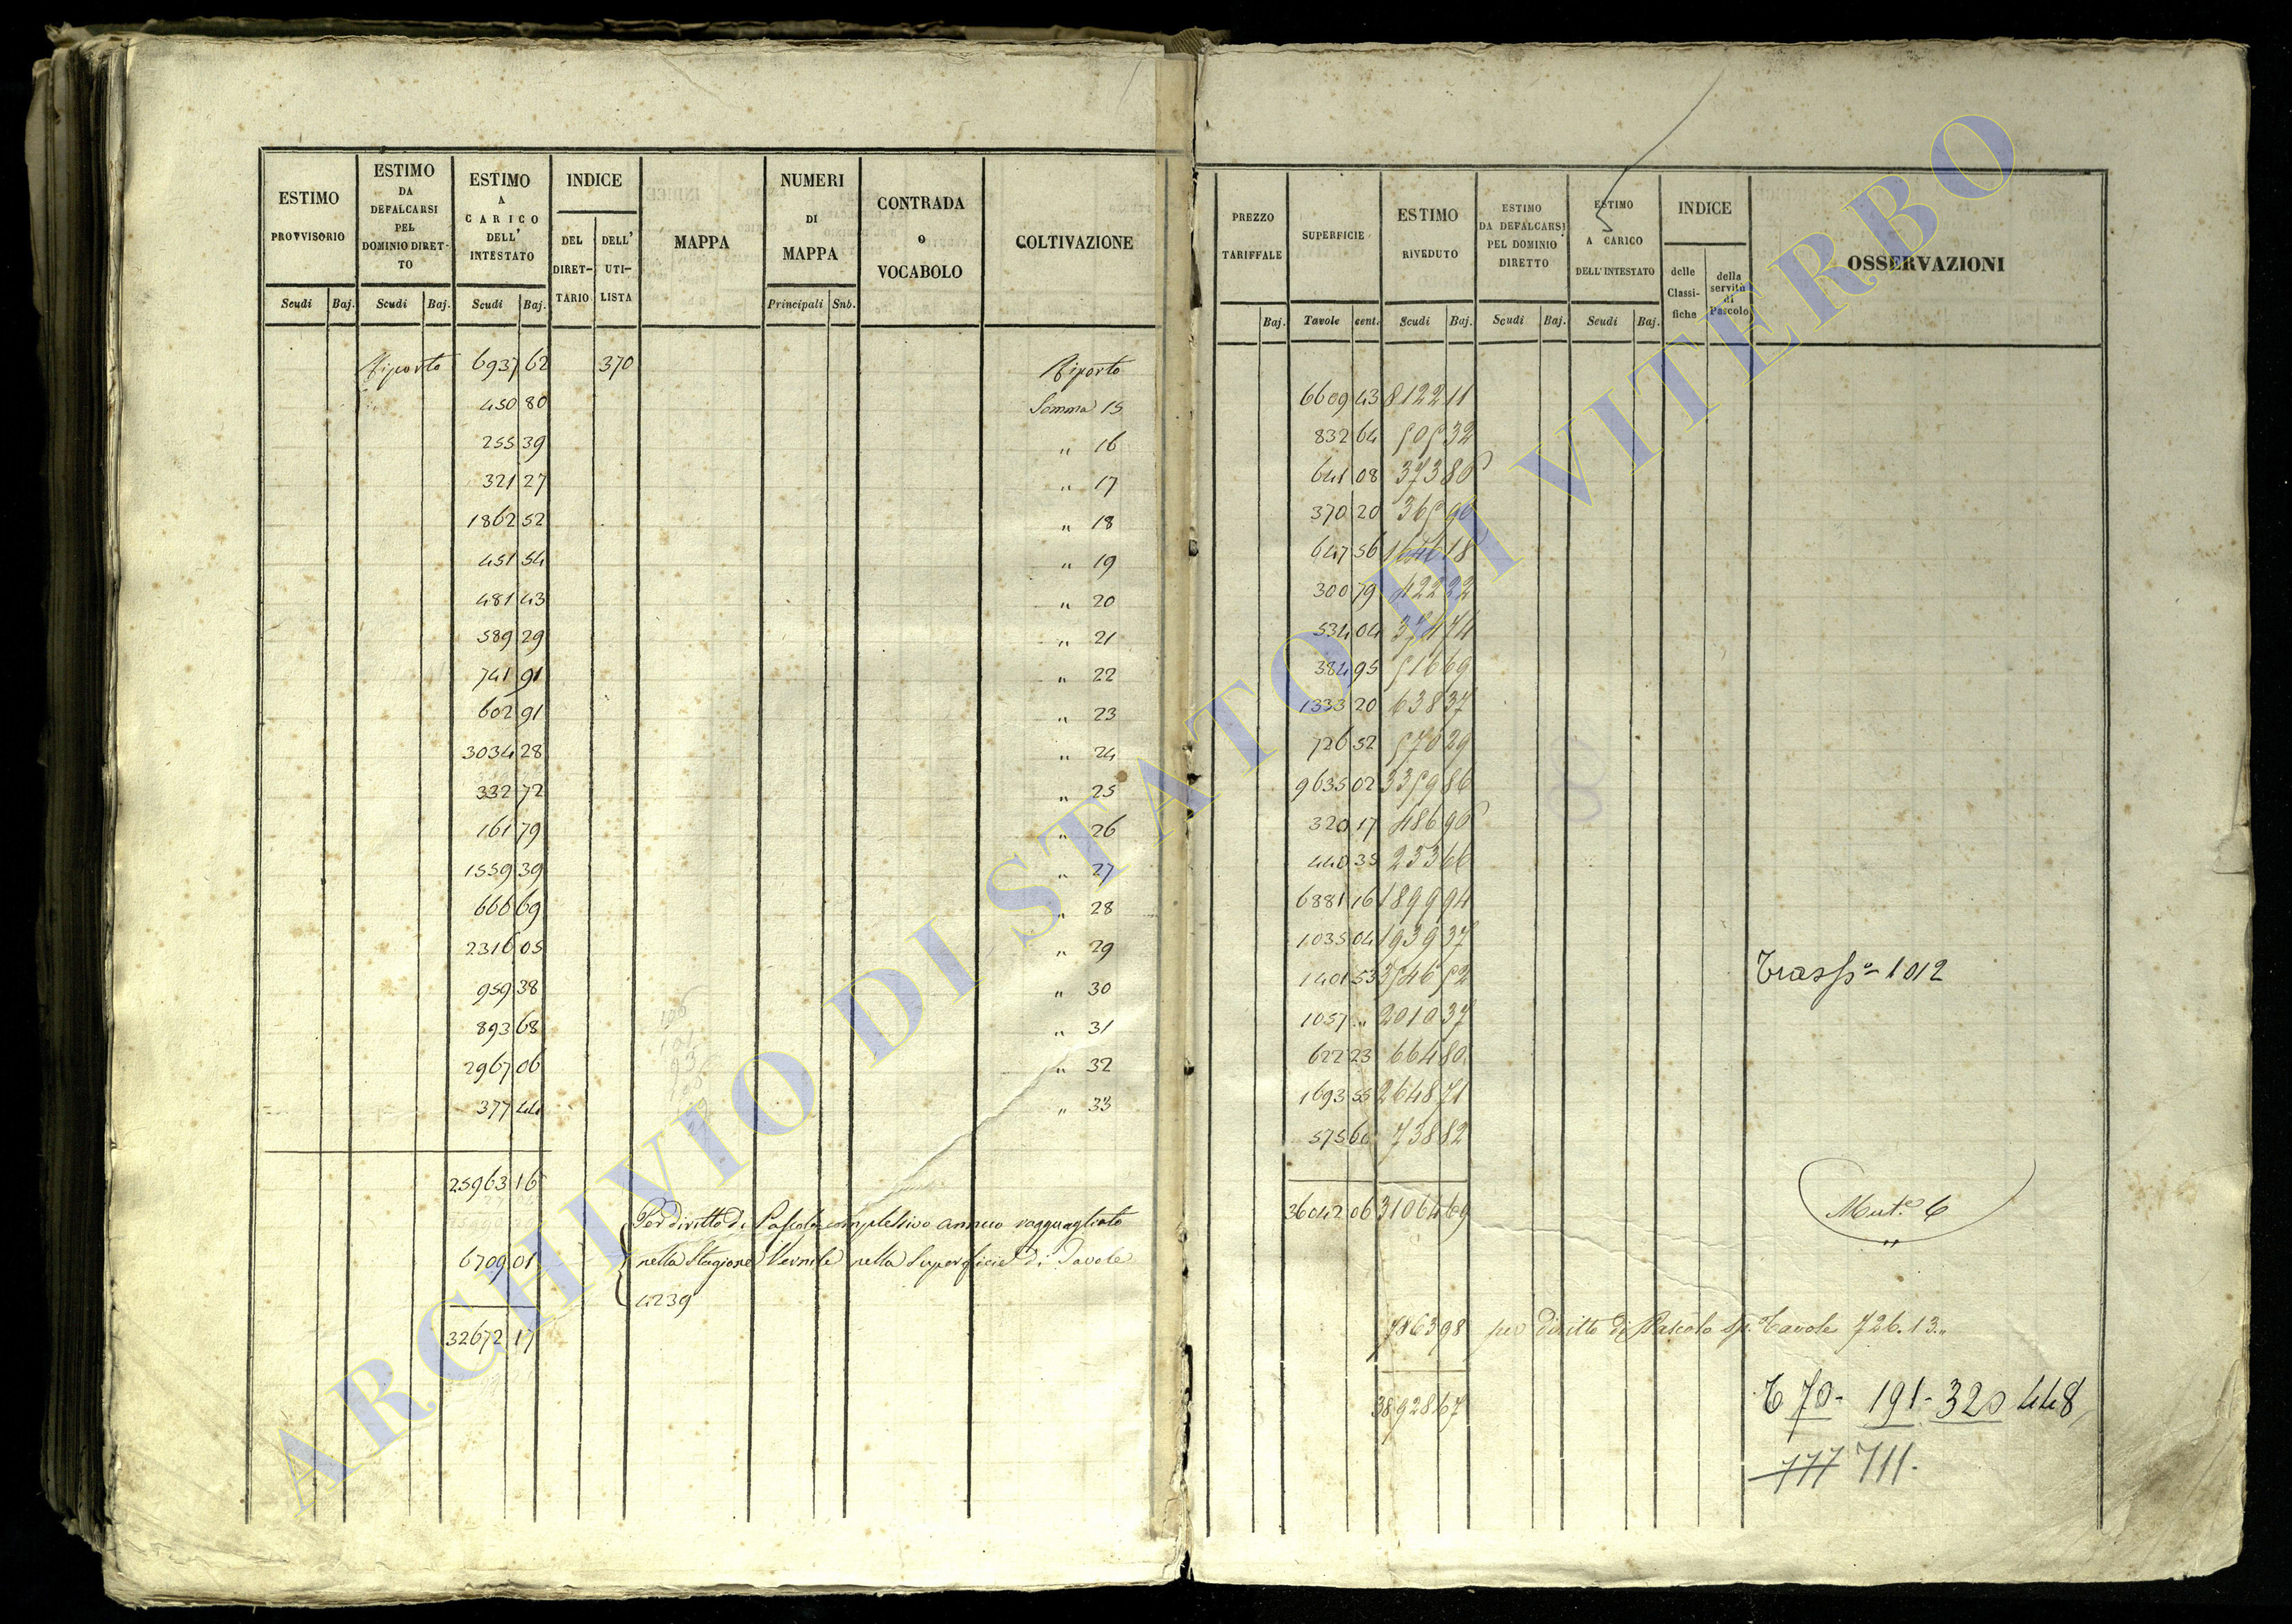 ESTIMO PROVVISORIO Scudi Baj.
ESTIMO DA DEFALCARSI PEL DOMINIO DIRETTO Scudi Baj.
ESTIMO A CARICO DELL' INTESTATO Scudi Baj.
INDICE DEL DIRETTARIO DELL' UTILISTA
MAPPA
NUMERI DI MAPPA Principali Sub.
CONTRADA o VOCABOLO
COLTIVAZIONE
Riporto 6937 62 370 Riporto
450 80 Somma 15
255 39 " 16
321 27 " 17
1862 52 " 18
451 54 " 19
481 43 " 20
589 29 " 21
741 91 " 22
602 91 " 23
3034 28 " 24
332 72 " 25
161 79 " 26
1559 39 " 27
666 69 " 28
2316 05 " 29
959 38 " 30
893 68 " 31
2967 06 " 32
377 44 " 33
25963 16
Per diritto di Pascolo complessivo annuo ragguagliato
6709 01 nella Stagione Vernile nella Superficie di Tavole
4239
32672 17
PREZZO TARIFFALE Baj.
SUPERFICIE Tavole cent.
ESTIMO RIVEDUTO Scudi Baj.
ESTIMO DA DEFALCARSI PEL DOMINIO DIRETTO Scudi Baj.
ESTIMO A CARICO DELL' INTESTATO Scudi Baj.
INDICE delle Classifiche della servitù di Pascolo
OSSERVAZIONI
6609 43 8122 11
832 64 505 32
641 08 373 80
370 20 365 90
647 56 1646 18
300 79 422 22
534 04 374 74
384 95 516 69
1333 20 638 37
726 52 570 29
9635 02 3359 86
320 17 486 90
440 35 233 66
6881 16 1899 94
1035 04 1939 37
1401 53 3546 52 Trassp° 1012
1057 " 2010 37
622 23 664 80
1693 55 2648 71
575 60 738 82
36042 06 31064 69 Mut.e 6
7863 98 per diritto di Pascolo sp. Tavole 726.13"
38928 67
T 70- 191- 320 448
777 711.
ARCHIVIO DI STATO DI VITERBO